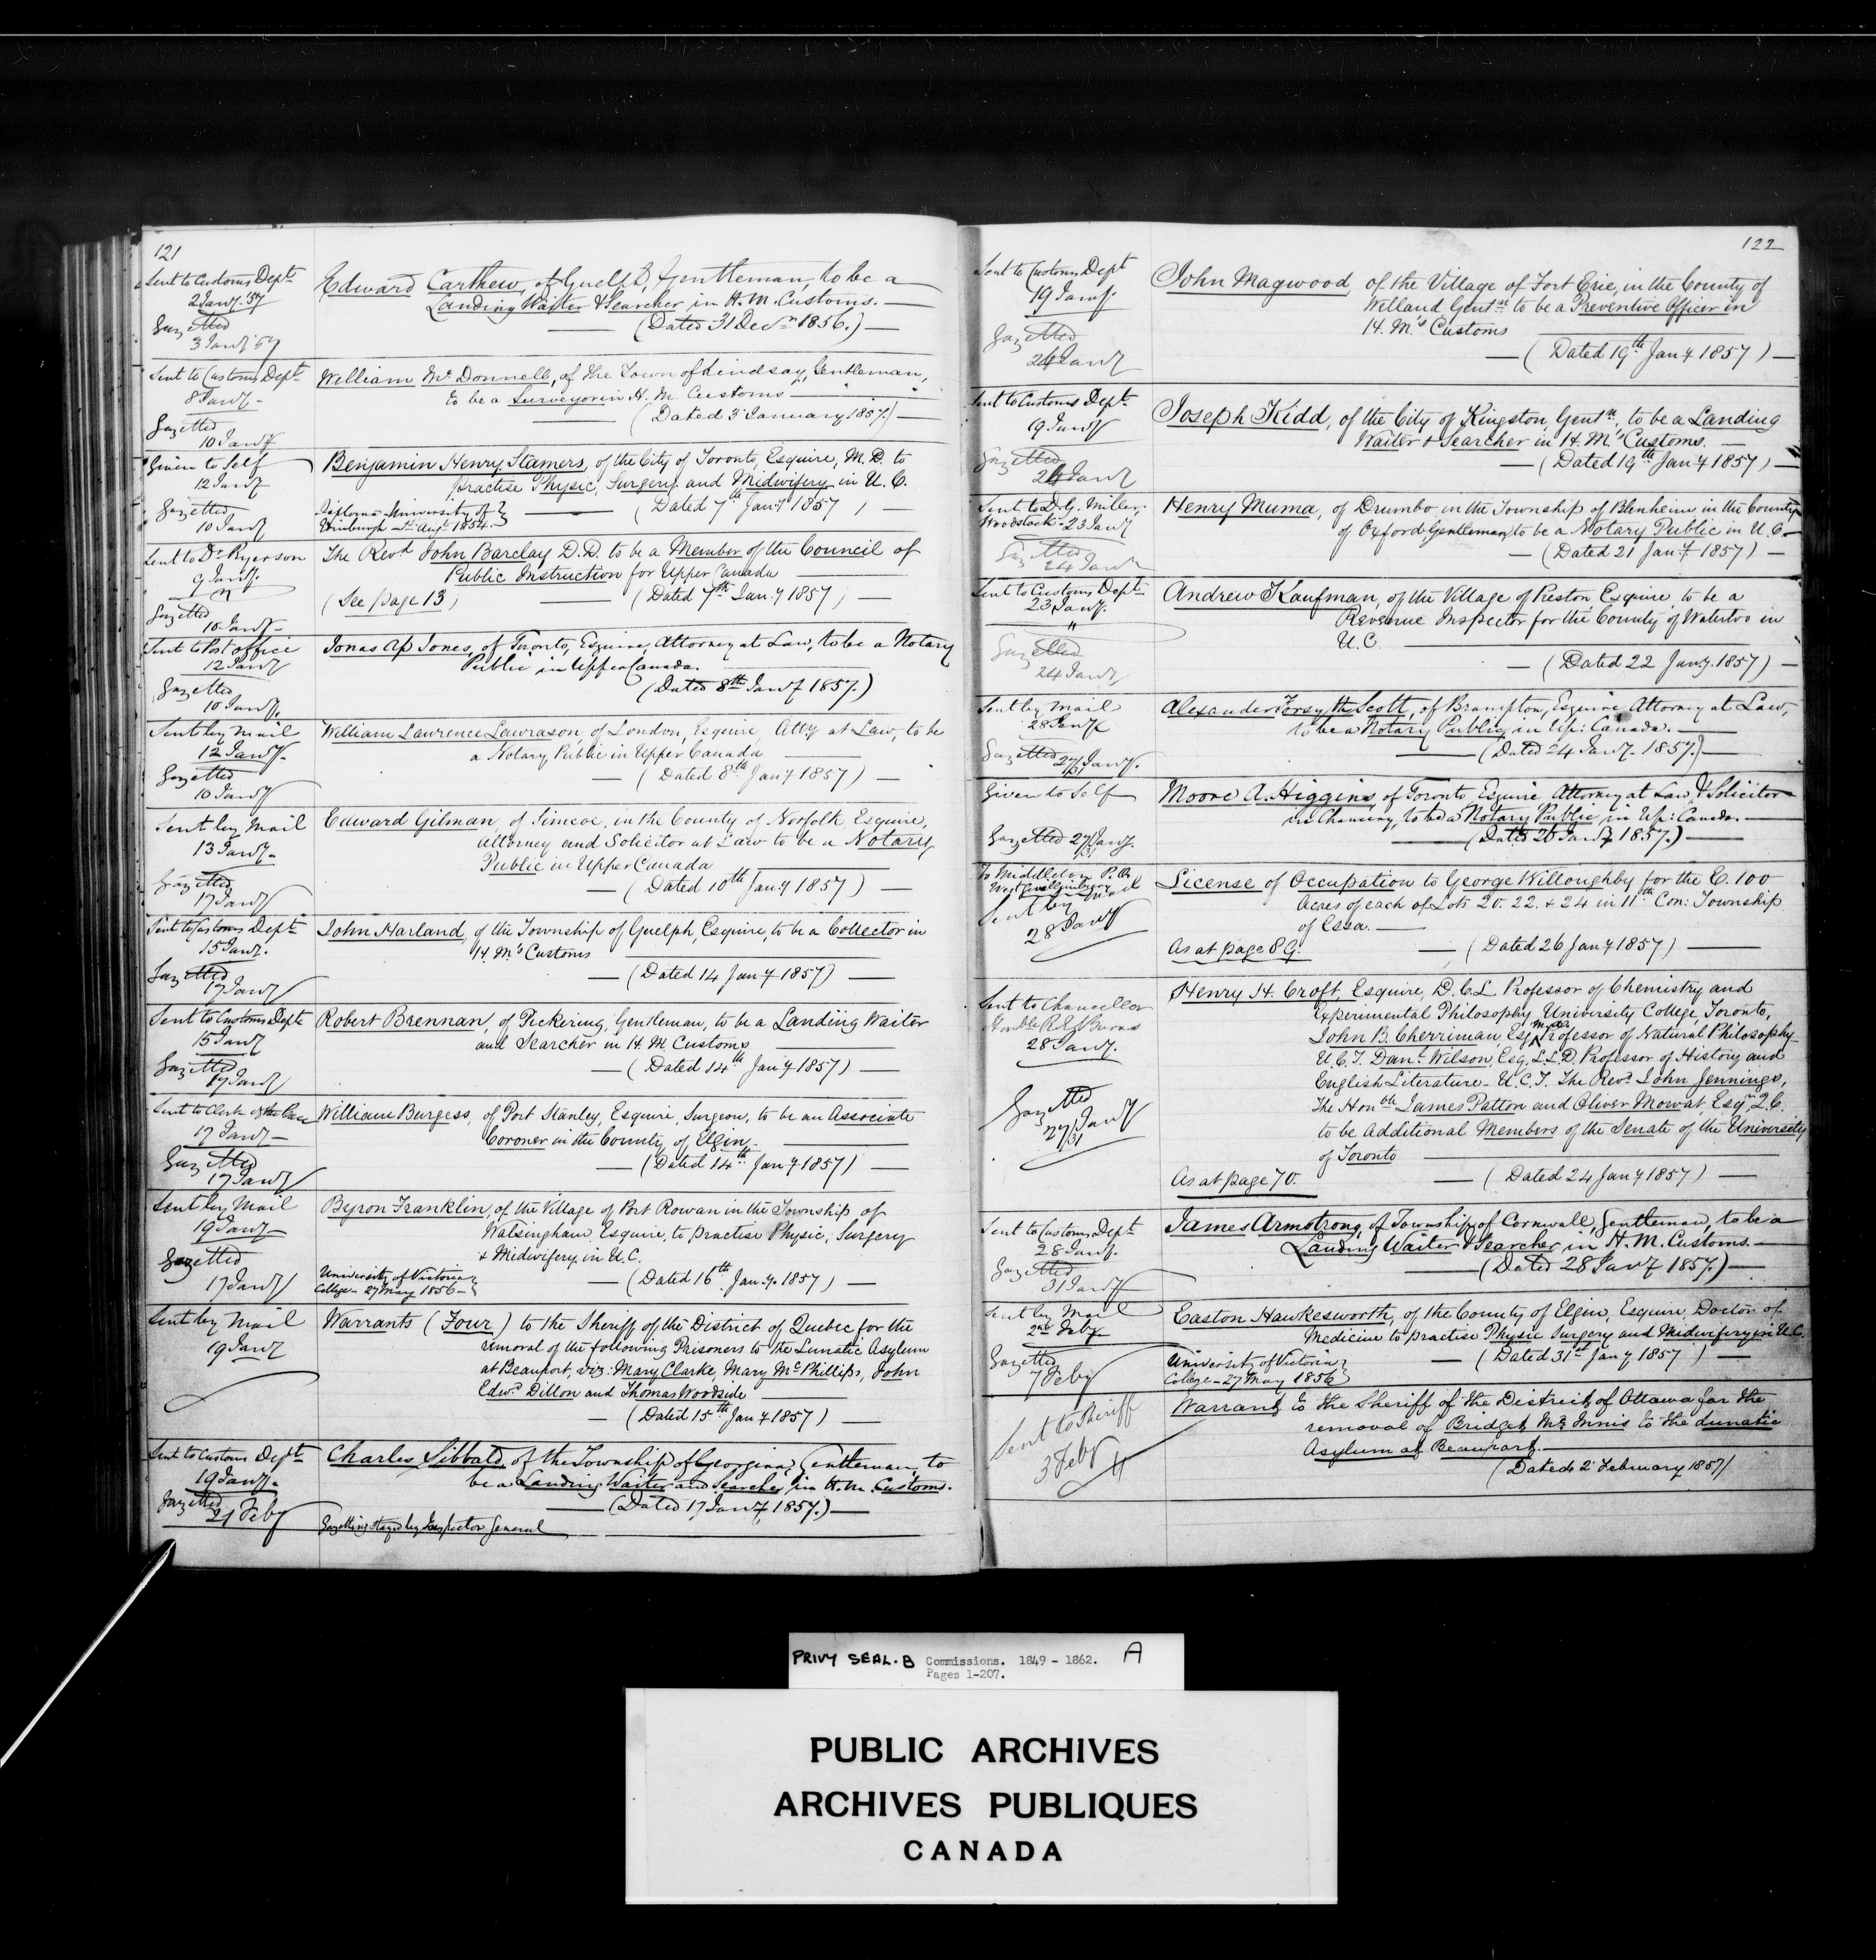 121
Sent to Customs Dept
2 Jany. 57
Gazetted
3 Jany 57
Edward Carthew, of Guelph, Gentleman, to be a
Landing Waiter & Searcher in H. M. Customs. —
(Dated 31 Decr 1856.) —
Sent to Customs Dept
8 Jany -
Gazetted
10 Jany
William Mc Donnell, of the Town of Lindsay, Gentleman,
to be a Surveyor in H. M. Customs —
(Dated 3 January 1857.) —
Given to Self
12 Jany
Gazetted
10 Jany
Benjamin Henry Stamers, of the City of Toronto, Esquire, M. D. to
practise Physic, Surgery and Midwifery in U. C.
(Dated 7th Jany 1857) —
Diploma University of
Edinburgh Augt 1854.
Sent to Dr Ryerson
9 Jany.
Gazetted
10 Jany -
The Revd John Barclay D. D. to be a Member of the Council of
Public Instruction for Upper Canada —
(See page 13) — (Dated 7th Jany 1857) —
Sent to Post office
12 Jany
Gazetted
10 Jany.
Jonas Ap Jones, of Toronto, Esquire, Attorney at Law, to be a Notary
Public in Upper Canada.
(Dated 8th Jany 1857.)
Sent by Mail
12 Jany -
Gazetted
10 Jany
William Lawrence Lawrason, of London, Esquire, Atty at Law, to be
a Notary Public in Upper Canada —
— (Dated 8th Jany 1857) —
Sent by Mail
13 Jany -
Gazetted
17 Jany
Edward Gilman, of Simcoe, in the County of Norfolk, Esquire,
Attorney and Solicitor at Law to be a Notary
Public in Upper Canada
— (Dated 10th Jany 1857) —
Sent to Customs Dept
15 Jany.
Gazetted
17 Jany
John Harland, of the Township of Guelph, Esquire, to be a Collector in
H. M.'s Customs —
— (Dated 14 Jany 1857) —
Sent to Customs Dept
15 Jany
Gazetted
17 Jany
Robert Brennan, of Pickering, Gentleman, to be a Landing Waiter
and Searcher in H. M. Customs —
— (Dated 14th Jany 1857) —
Sent to Clerk of the Peace
17 Jany —
Gazetted
17 Jany
William Burgess, of Port Stanley, Esquire, Surgeon, to be an Associate
Coroner in the County of Elgin. —
— (Dated 14th Jany 1857) —
Sent by Mail
19 Jany —
Gazetted
17 Jany
Byron Franklin, of the Village of Port Rowan in the Township of
Walsingham, Esquire, to practise Physic, Surgery
& Midwifery in U. C.
University of Victoria
College - 27 May 1856 -
— (Dated 16th Jany. 1857) —
Sent by Mail
19 Jany
Warrants (Four) to the Sheriff of the District of Quebec for the
removal of the following Prisoners to the Lunatic Asylum
at Beauport, viz: Mary Clarke, Mary Mc Phillips, John
Edwd Dillon and Thomas Woodside —
— (Dated 15th Jany 1857) —
Sent to Customs Dept
19 Jany. -
Gazetted
21 Feby
Charles Sibbald, of the Township of Georgina, Gentleman, to
be a Landing Waiter and Searcher in H. M. Customs.
— (Dated 17 Jany 1857.) —
Gazetting stayed by Inspector General
122
Sent to Customs Dept
19 Jany.
Gazetted
24 Jany
John Magwood, of the Village of Fort Erie, in the County of
Welland Gentn to be a Preventive Officer in
H. M.'s Customs —
— (Dated 19th Jany 1857) —
Sent to Customs Dept
19 Jany
Gazetted
24 Jany
Joseph Kidd, of the City of Kingston, Gentn, to be a Landing
Waiter & Searcher in H. M.'s Customs. —
— (Dated 19th Jany 1857) —
Sent to D. G. Miller,
Woodstock - 23 Jany
Gazetted
24 Jany
Henry Muma, of Drumbo in the Township of Blenheim in the County
of Oxford Gentleman, to be a Notary Public in U. C. —
— (Dated 21 Jany 1857) —
Sent to Customs Dept
23 Jany.
"
Gazetted
24 Jany
Andrew Kaufman, of the Village of Preston Esquire, to be a
Revenue Inspector for the County of Waterloo in
U. C. —
— (Dated 22 Jany. 1857) —
Sent by Mail
28 Jany
Gazetted 27/31 Jany.
Alexander Forsyth Scott, of Brampton, Esquire, Attorney at Law,
to be a Notary Public in Up: Canada. —
— (Dated 24 Jany. 1857.) —
Given to Self
Gazetted 27/31 Jany.
Moore A. Higgins, of Toronto Esquire Attorney at Law & Solicitor
in Chancery, to be a Notary Public in Up: Canada. —
— (Dated 26 Jany 1857.) —
To Middleton P. O.
West Gwillimbury
Sent by Mail
28 Jany
License of Occupation to George Willoughby for the E. 100
Acres of each of Lots 20. 22. & 24 in 11th Con: Township
of Essa. —
As at page 89. — (Dated 26 Jany 1857) —
Sent to Chancellor
Honble R. E. Burns
28 Jany.
Gazetted
27/31 Jany
Henry H. Croft, Esquire, D. C. L. Professor of Chemistry and
Experimental Philosophy, University College, Toronto,
John B. Cherriman, Esq, M.A. Professor of Natural Philosophy
U. C. T. Danl Wilson, Esq, L. L. D. Professor of History and
English Literature - U. C. T. The Revd John Jennings,
The Honble James Patton and Oliver Mowat, Esqr Q. C.
to be Additional Members of the Senate of the University
of Toronto —
As at page 70. — (Dated 24 Jany 1857) —
Sent to Customs Dept
28 Jany.
Gazetted
31 Jany
James Armstrong, of Township of Cornwall, Gentleman, to be a
Landing Waiter & Searcher in H. M. Customs. —
— (Dated 28 Jany 1857.) —
Sent by Mail
2nd Feby
Gazetted
7 Feby
Easton Hawkesworth, of the County of Elgin, Esquire, Doctor of
Medicine to practise Physic Surgery and Midwifery in U.C.
University of Victoria
College - 27 May 1856
— (Dated 31st Jany 1857) —
Sent to Sheriff
3 Feby
Warrant to the Sheriff of the District of Ottawa for the
removal of Bridget Mc Innis to the Lunatic
Asylum at Beauport. —
(Dated 2 February 1857)
PRIVY SEAL. B Commissions. 1849 - 1862. A
Pages 1-207.
PUBLIC ARCHIVES
ARCHIVES PUBLIQUES
CANADA